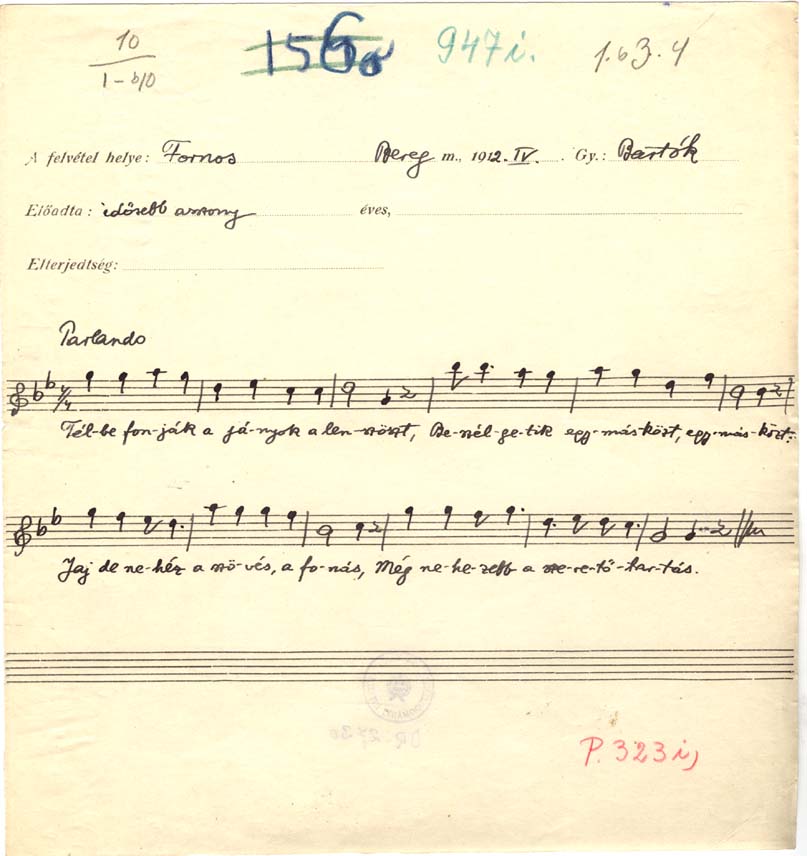 10
1-b)0
947 i.
1.63.4
A felvétel helye: Fornos Bereg m., 1912. IV. Gy.: Bartók
Előadta: idősebb asszony éves,
Elterjedtség:
Parlando
Tél-be fon-ják a já-nyok a len-szöszt, Be-szél-ge-tik egy-más-közt, egy-más-közt:
Jaj de ne-héz a szö-vés, a fo-nás, Még ne-he-zebb a sze-re-tő-tar-tás.
P. 323 i)